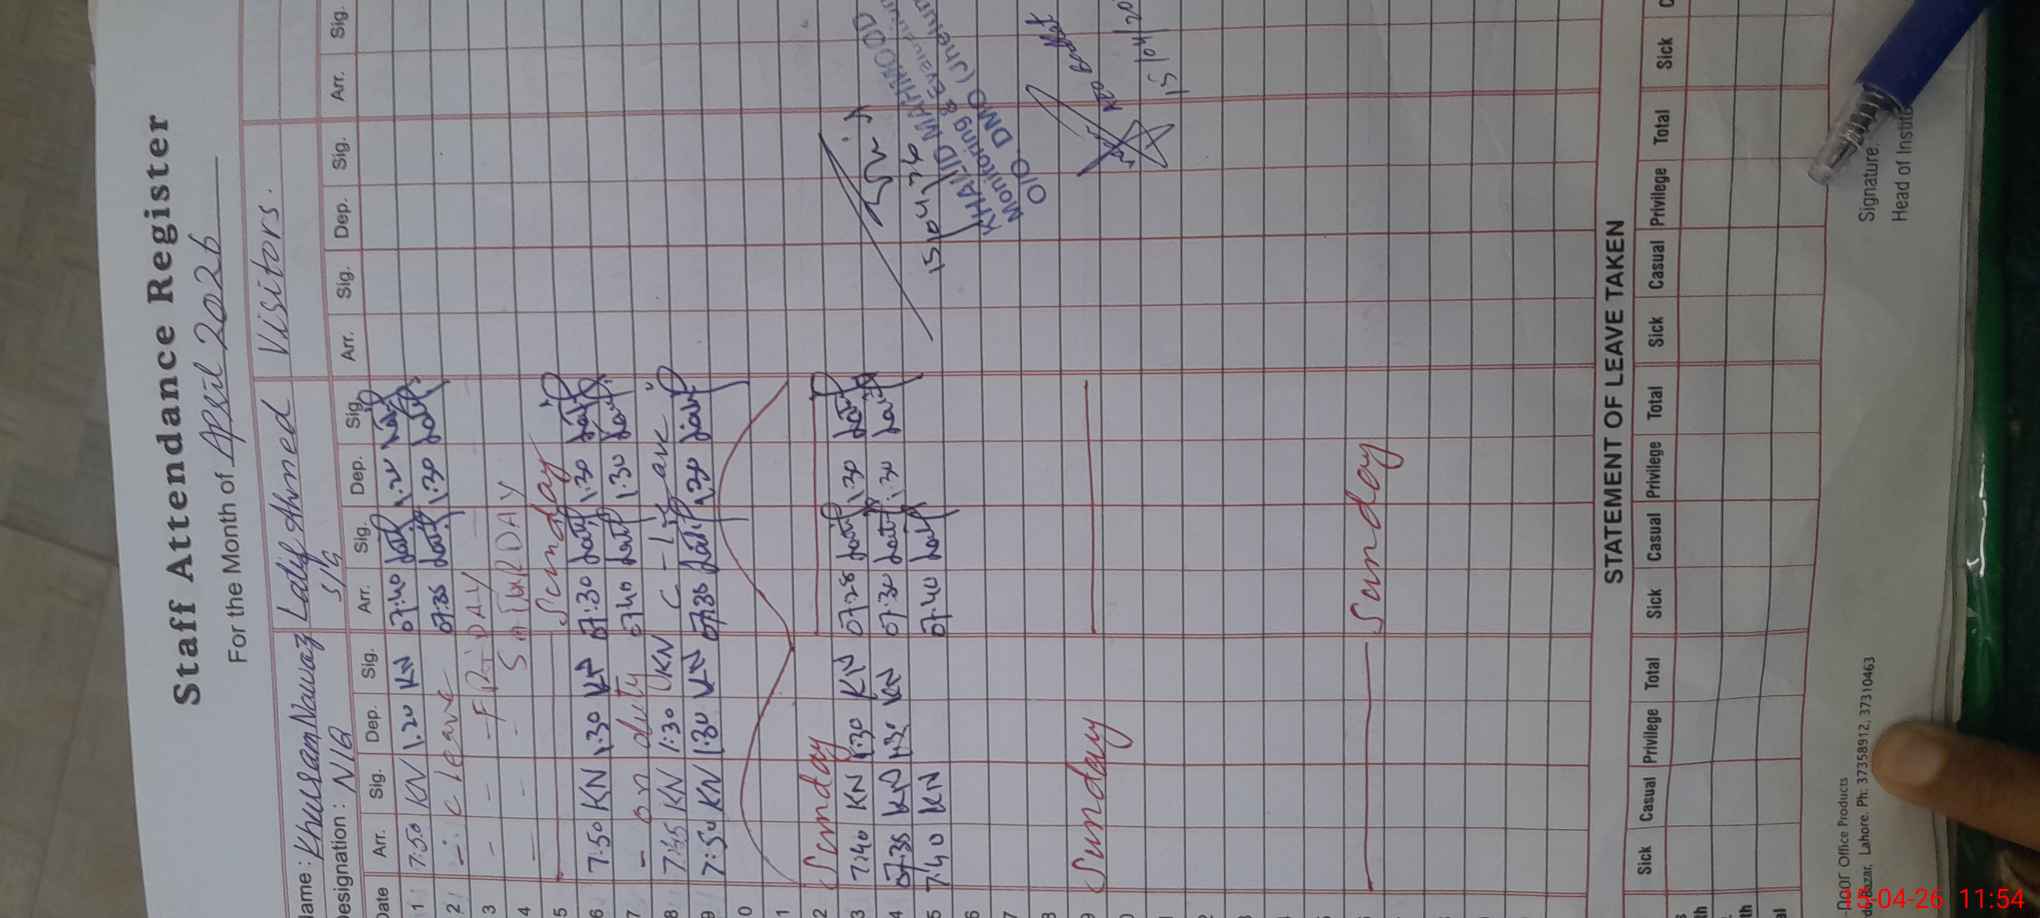 Staff Attendance Register
For the Month of April 2026
Name: Khurram Nawaz Latif Ahmed Visitors.
Designation: N/Q S/G
Date Arr. Sig. Dep. Sig. Arr. Sig. Dep. Sig. Arr. Sig. Dep. Sig. Arr. Sig.
1 7:50 KN 1.20 KN 07:40 Latif 1.20 Latif
2 C leave 07:35 Latif 1:30 Latif
3 FRIDAY
4 SATURDAY
5 Sunday
6 7:50 KN 1:30 KN 07:30 Latif 1:30 Latif
7 on duty 07:40 Latif 1:30 Latif
8 7:45 KN 1:30 KN C - leave
9 7:50 KN 1:30 KN 07:35 Latif 1:30 Latif
10
11
12 Sunday
13 7:40 KN 1:30 KN 07:28 Latif 1:30 Latif
14 07:35 KN 1:30 KN 07:30 Latif 1:30 Latif
15 7:40 KN 07:40 Latif
16
17
18
19 Sunday
20
Sunday
15/04/26
KHALID MAHMOOD
Monitoring & Evaluation
O/O DMO (Jhelum
15/04/20
STATEMENT OF LEAVE TAKEN
Sick Casual Privilege Total Sick Casual Privilege Total Sick Casual Privilege Total Sick
Signature
Head of Institu
Noor Office Products
Bazar, Lahore. Ph: 37358912, 37310463
15-04-26 11:54